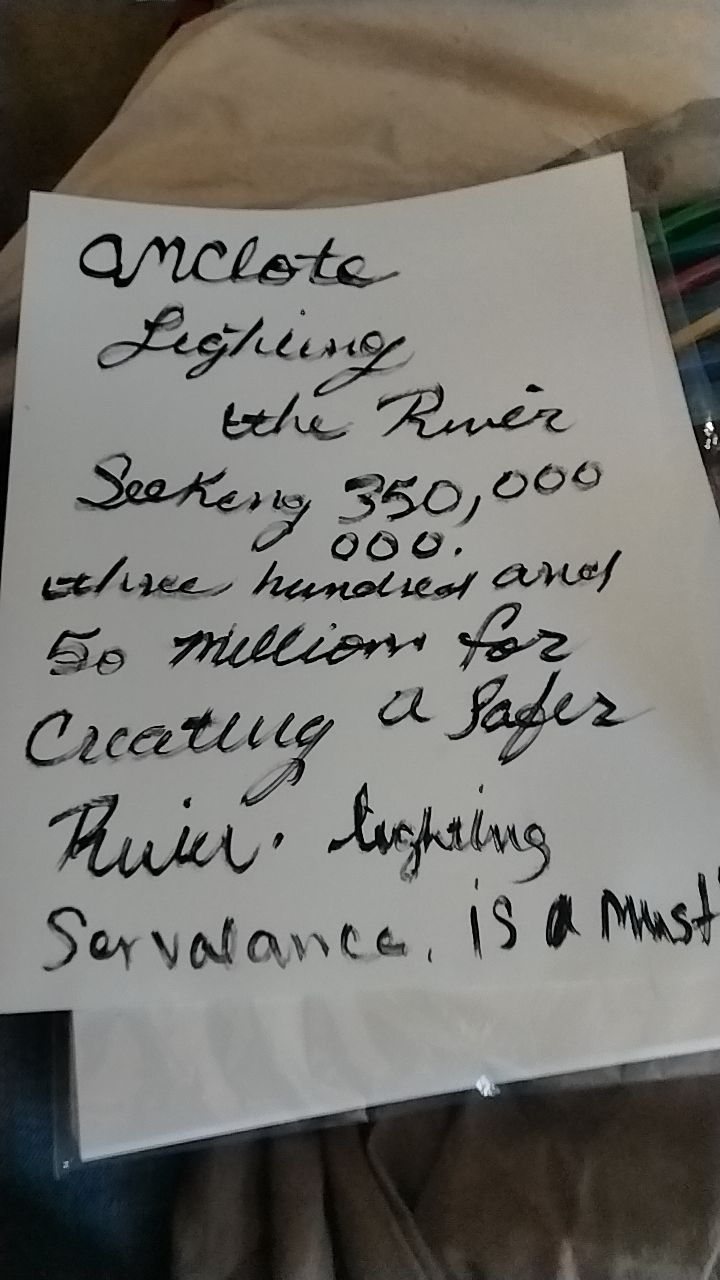 Anclote
Lighting
the River
Seeking 350,000
000.
three hundred and
50 million for
Creating a Safer
River. lighting
Servalance. is a must